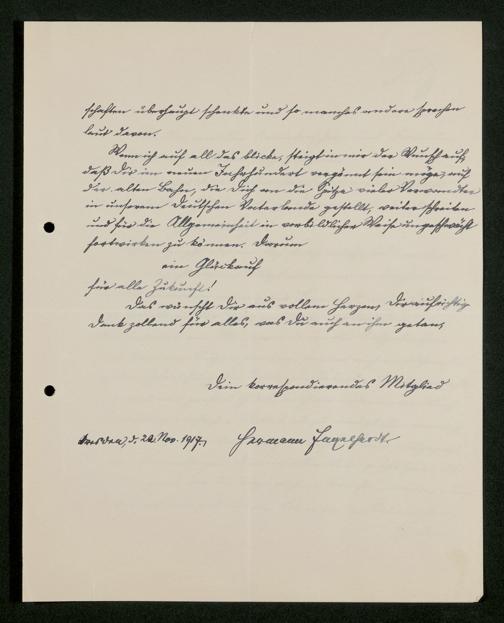 schaften überhaupt schenkte und so manches andere sprechen
laut davon.
Wenn ich auf all das blicke, steigt in mir der Wunsch auf,
daß Dir im neuen Jahrhundert vergönnt sein möge, auf
der alten Bahn, die Dich an die Spitze vieler Verwandter
in unserem deutschen Vaterlande gestellt, weiter schreiten
und für die Allgemeinheit in vorbildlicher Weise ungeschwächt
fortwirken zu können. Darum
ein Glückauf
für alle Zukunft!
Das wünscht Dir aus vollem Herzen, Dir aufrichtig
Dank zollend für alles, was Du auch an ihm getan,
Dein korrespondierendes Mitglied
Dresden, d. 22. Nov. 1917. Hermann Engelhardt